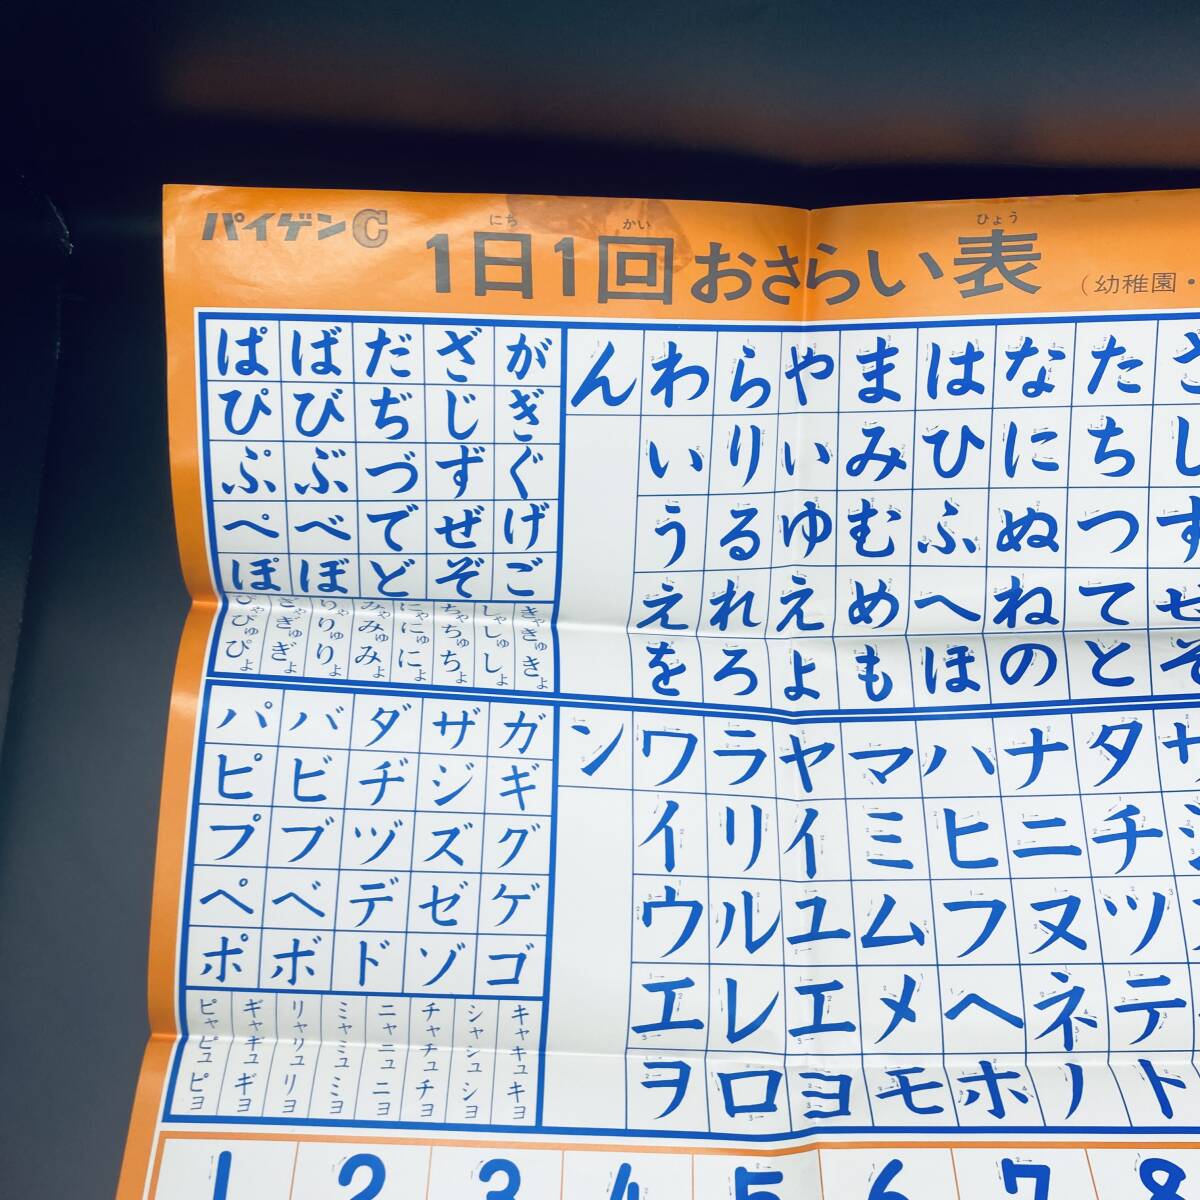 パイゲンC
1日1回おさらい表
にち かい ひょう
(幼稚園・
ぱ ば だ ざ が
ぴ び ぢ じ ぎ
ぷ ぶ づ ず ぐ
ぺ べ で ぜ げ
ぽ ぼ ど ぞ ご
ぴゃ ぎゃ りゃ みゃ にゃ ちゃ しゃ きゃ
ぴゅ ぎゅ りゅ みゅ にゅ ちゅ しゅ きゅ
ぴょ ぎょ りょ みょ にょ ちょ しょ きょ
ん わ ら や ま は な た さ
い り い み ひ に ち し
う る ゆ む ふ ぬ つ す
え れ え め へ ね て せ
を ろ よ も ほ の と そ
パ バ ダ ザ ガ
ピ ビ ヂ ジ ギ
プ ブ ヅ ズ グ
ペ ベ デ ゼ ゲ
ポ ボ ド ゾ ゴ
ピャ ギャ リャ ミャ ニャ チャ シャ キャ
ピュ ギュ リュ ミュ ニュ チュ シュ キュ
ピョ ギョ リョ ミョ ニョ チョ ショ キョ
ン ワ ラ ヤ マ ハ ナ タ サ
イ リ イ ミ ヒ ニ チ
ウ ル ユ ム フ ヌ ツ
エ レ エ メ ヘ ネ テ
ヲ ロ ヨ モ ホ ノ ト
1 2 3 4 5 6 7 8